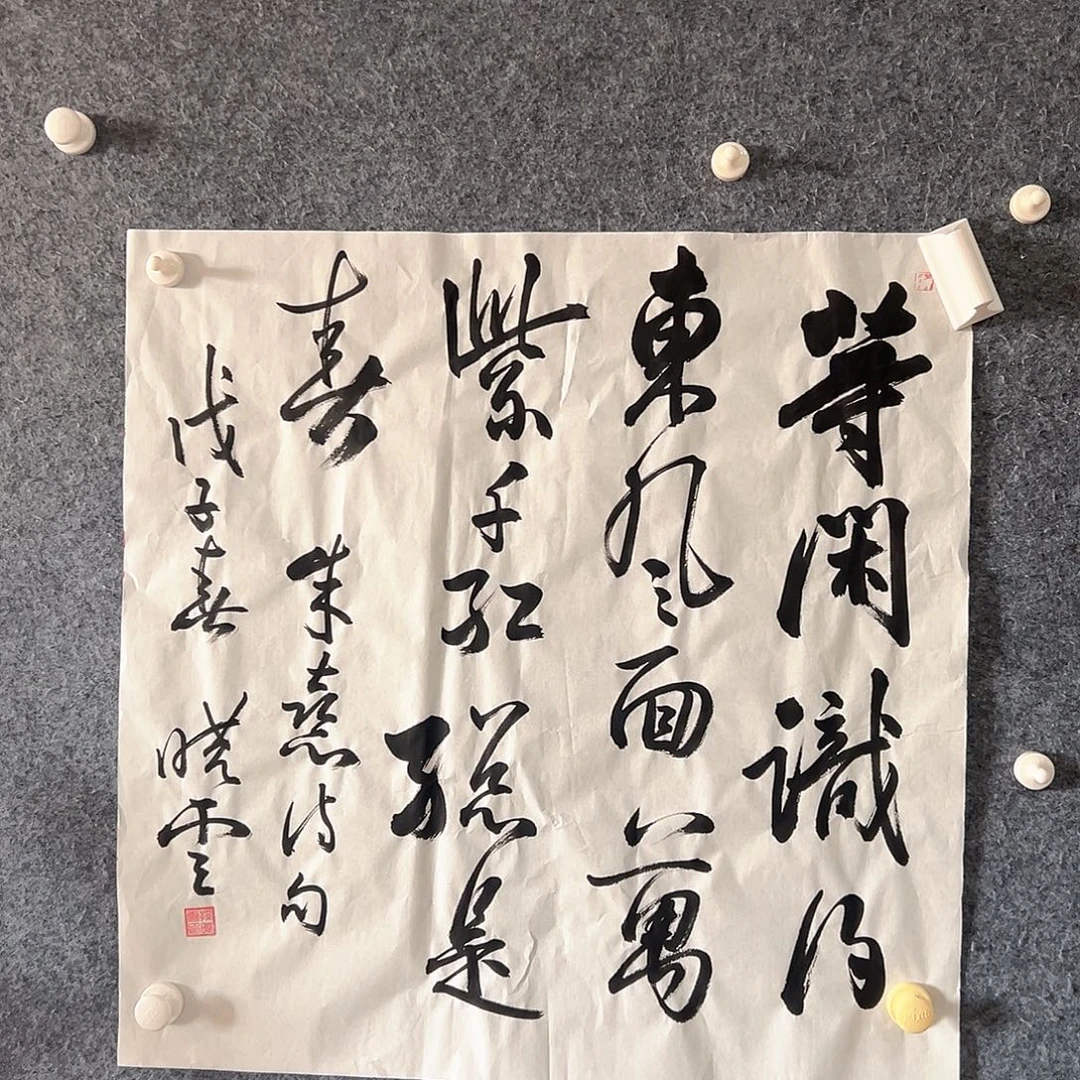 等閑識得
東風面萬
紫千紅總是
春 朱熹詩句
戊子春 曉雲